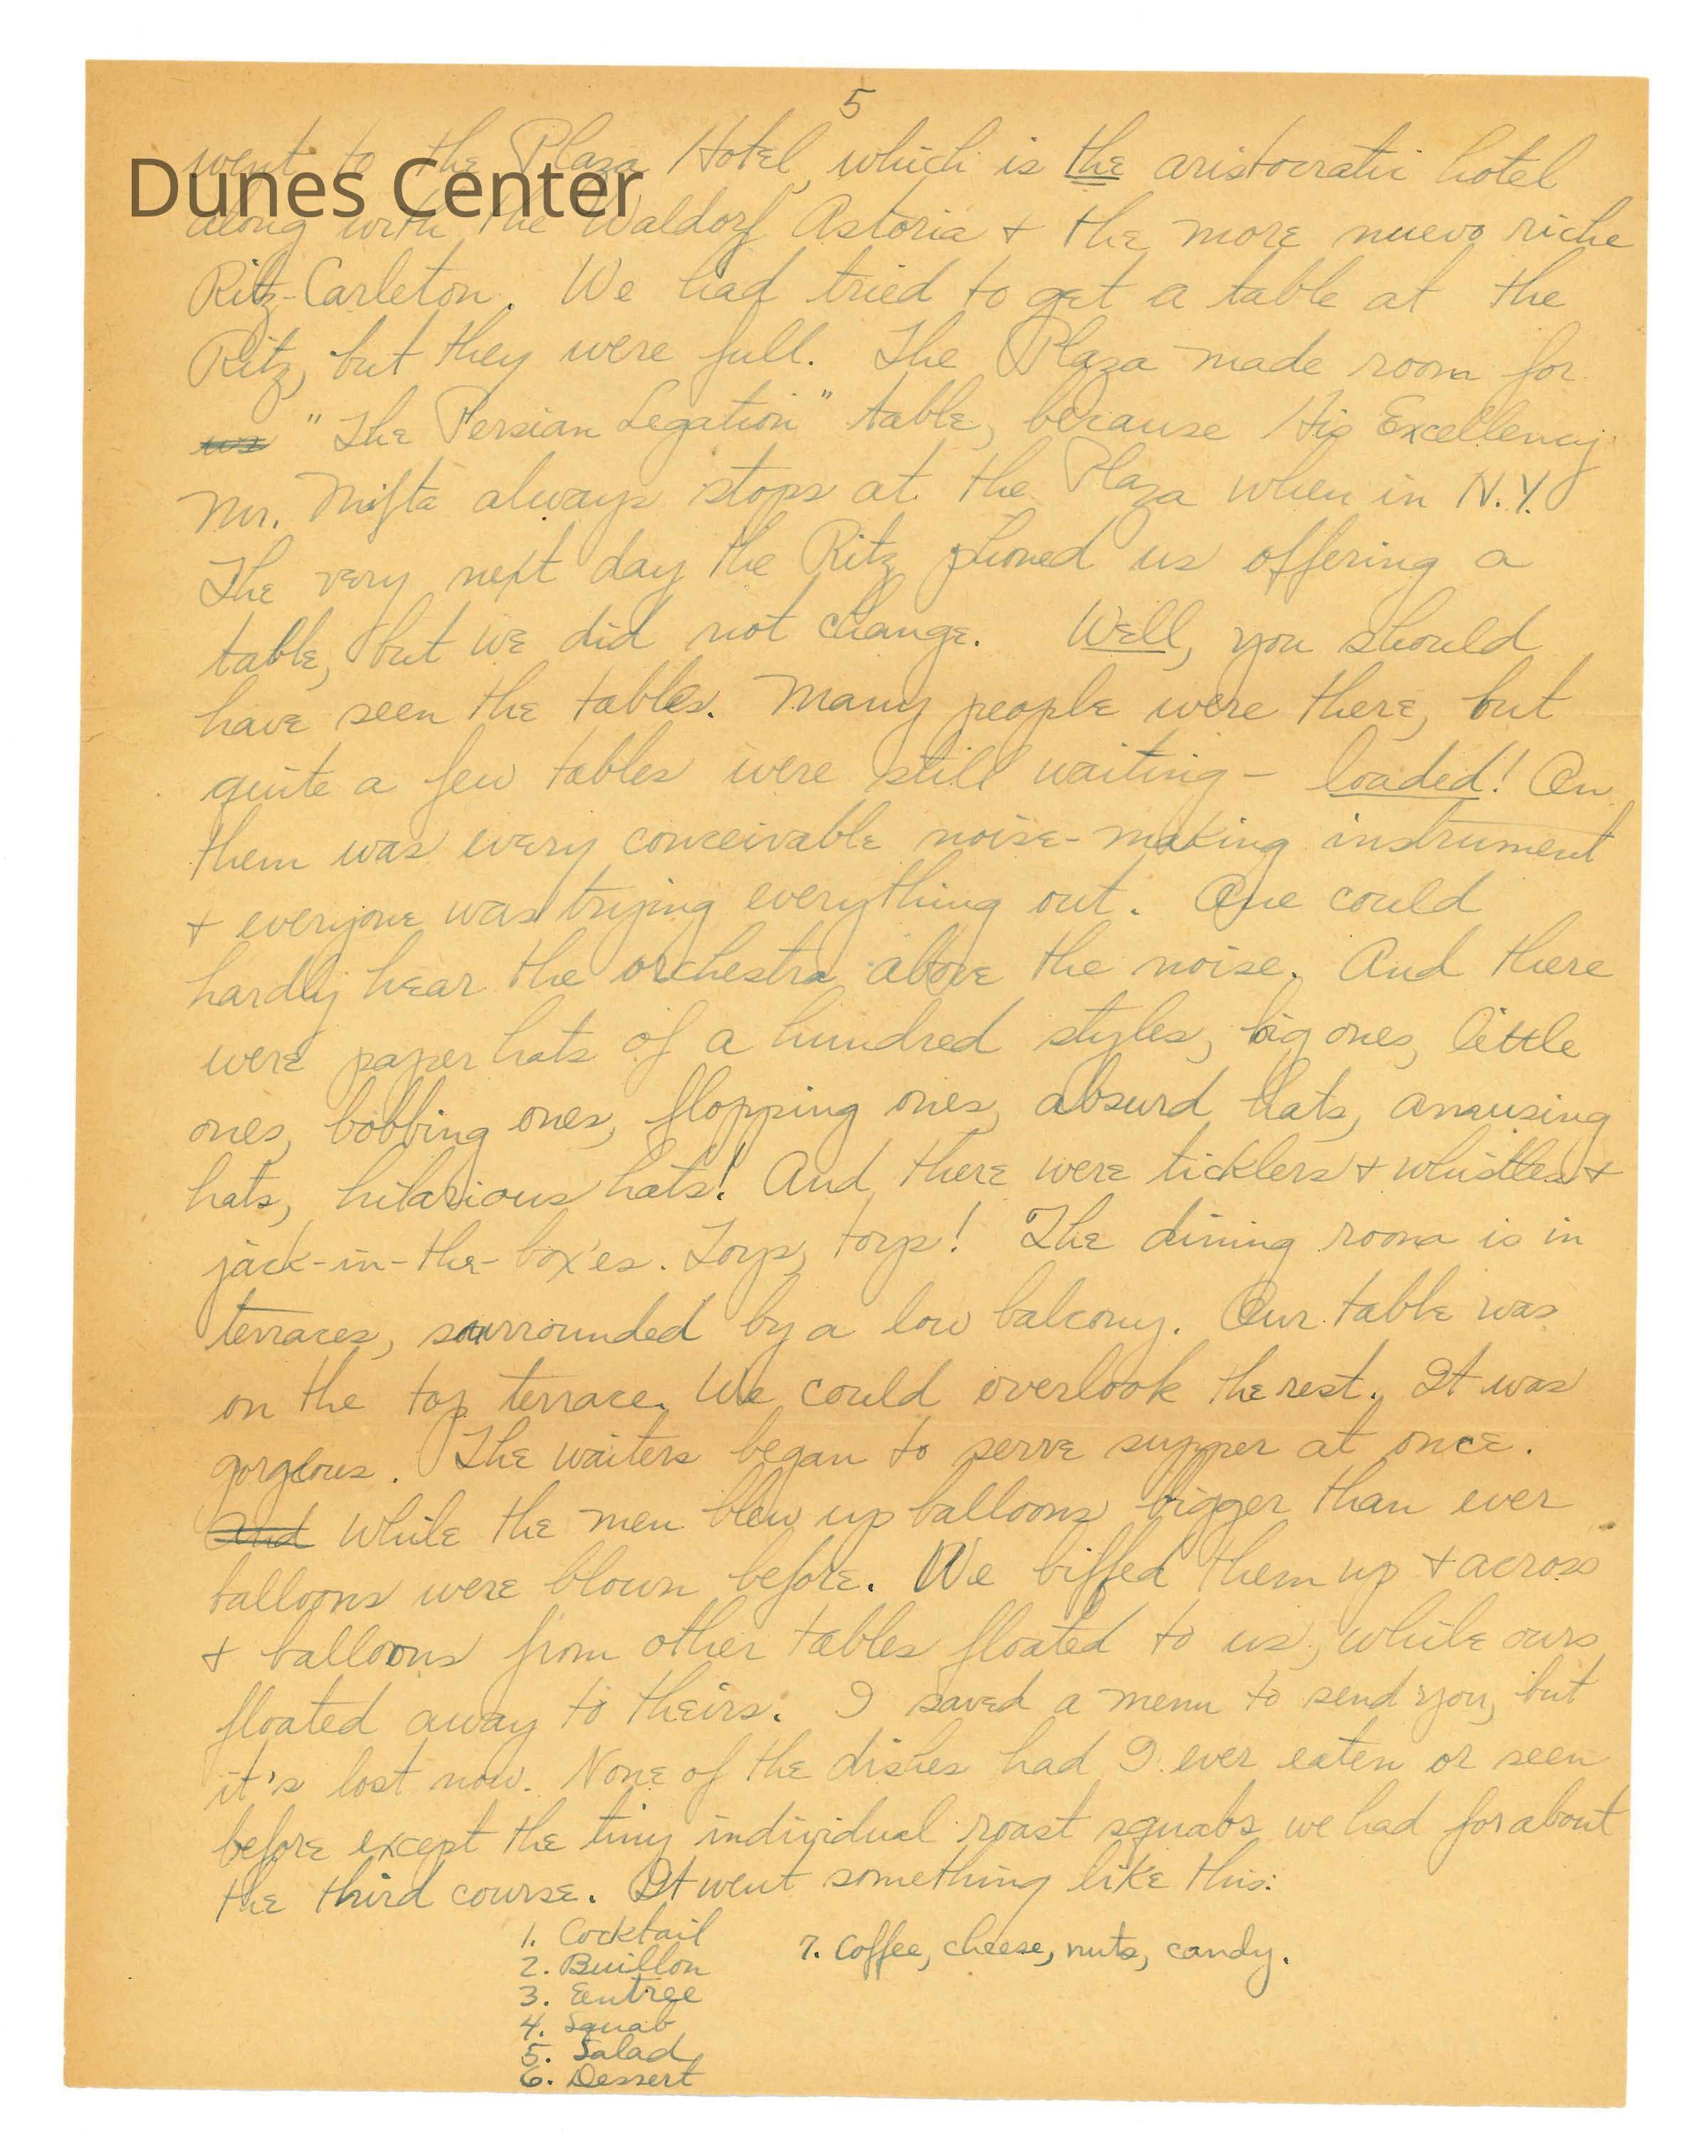 5
went to the Plaza Hotel, which is the aristocratic hotel
Dunes Center
along with the Waldorf Astoria + the more nuevo riche
Ritz-Carleton. We had tried to get a table at the
Ritz, but they were full. The Plaza made room for
us "The Persian Legation" table, because His Excellency
Mr. Mifta always stops at the Plaza when in N.Y.
The very next day the Ritz phoned us offering a
table, but we did not change. Well, you should
have seen the tables. Many people were there, but
quite a few tables were still waiting - loaded! On
them was every conceivable noise-making instrument
+ everyone was trying everything out. One could
hardly hear the orchestra above the noise. And there
were paper hats of a hundred styles, big ones, little
ones, bobbing ones, flopping ones, absurd hats, amusing
hats, hilarious hats! And there were ticklers + whistles +
jack-in-the-box'es. Toys, toys! The dining room is in
terraces, surrounded by a low balcony. Our table was
on the top terrace. We could overlook the rest. It was
gorgeous. The waiters began to serve supper at once.
and While the men blew up balloons bigger than ever
balloons were blown before. We biffed them up + across
+ balloons from other tables floated to us, while ours
floated away to theirs. I saved a menu to send you, but
it's lost now. None of the dishes had I ever eaten or seen
before except the tiny individual roast squabs we had for about
the third course. It went something like this:
1. Cocktail
2. Buillon
3. Eentree
4. Squab
5. Salad
6. Dessert
7. Coffee, cheese, nuts, candy.